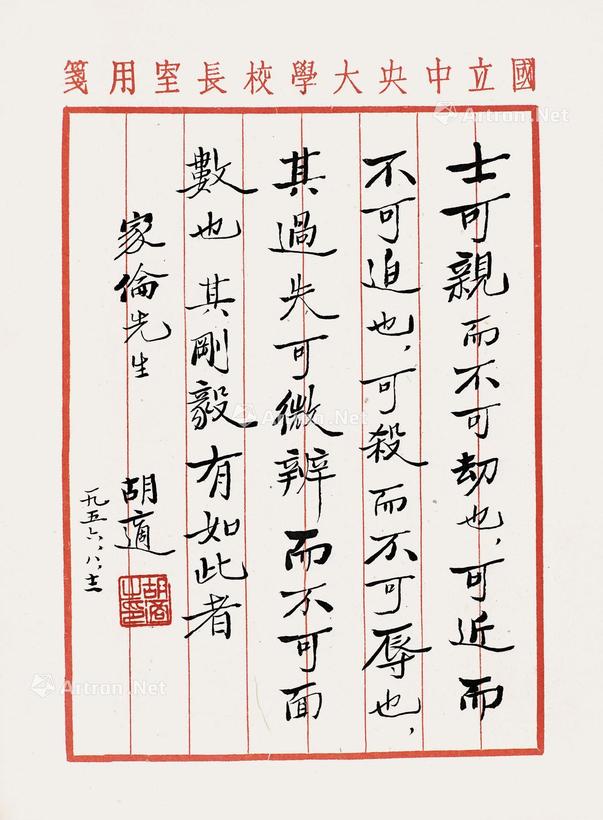 國立中央大學校長室用箋
士可親而不可劫也,可近而
不可迫也,可殺而不可辱也,
其過失可微辨而不可面
數也 其剛毅有如此者
家倫先生
胡適
一九五六、八、十二
胡適之印
Artron.Net
Artron.Net
Artron.Net